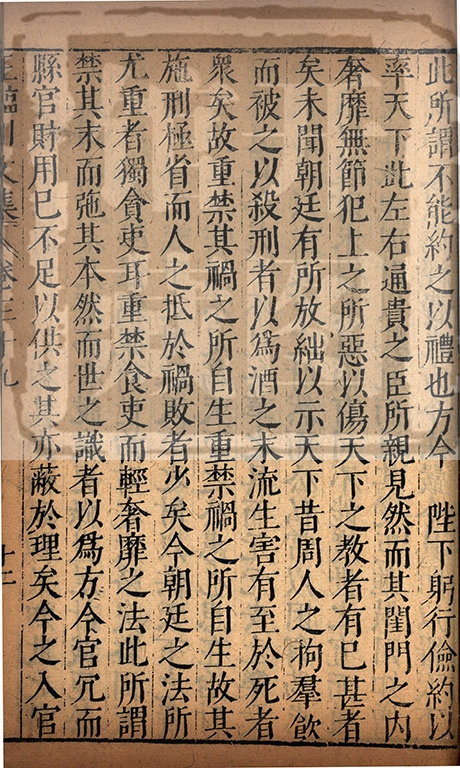 此所謂不能約之以禮也方今 陛下躬行儉約以
率天下此左右通貴之臣所親見然而其閨門之内
奢靡無節犯上之所惡以傷天下之教者有已甚者
矣未聞朝廷有所放絀以示天下昔周人之拘羣飲
而被之以殺刑者以爲酒之末流生害有至於死者
衆矣故重禁其禍之所自生重禁禍之所自生故其
施刑極省而人之抵於禍敗者少矣今朝廷之法所
尤重者獨貪吏耳重禁貪吏而輕奢靡之法此所謂
禁其末而弛其本然而世之識者以爲方今官冗而
縣官財用已不足以供之其亦蔽於理矣今之入官
王臨川文集 卷三十九 十二